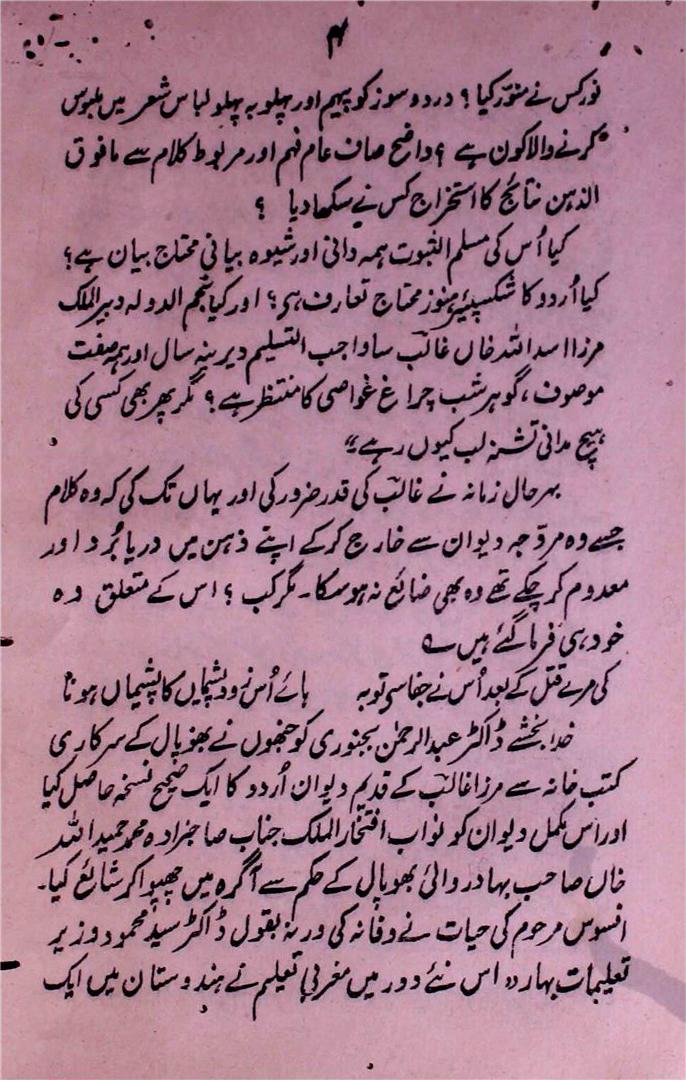 ۴
نور کس نے منوّر کیا؟ درد و سوز کو پیہم اور پہلو بہ پہلو لباس شعر میں ملبوس
کرنے والا کون ہے؟ واضح صاف عام فہم اور مربوط کلام سے مافوق
الذہن نتائج کا استخراج کس نے سکھا دیا ؟
کیا اُس کی مسلم الثبوت ہمہ دانی اور شیوہ بیانی محتاج بیان ہے؟
کیا اُردو کا شکسپیئر ہنوز محتاج تعارف ہے؟ اور کیا نجم الدولہ دبیر الملک
مرزا اسد اللہ خاں غالبؔ سا واجب التسلیم دیرینہ سال اور ہمہ صفت
موصوف، گوہر شب چراغ غواصی کا منتظر ہے؟ مگر پھر بھی کسی کی
ہیچ مدانی تشنہ لب کیوں رہے"
بہر حال زمانہ نے غالبؔ کی قدر ضرور کی اور یہاں تک کی کہ وہ کلام
جسے وہ مروّجہ دیوان سے خارج کر کے اپنے ذہن میں دریا بُرد اور
معدوم کر چکے تھے وہ بھی ضائع نہ ہو سکا۔ مگر کب؟ اس کے متعلق وہ
خود ہی فرما گئے ہیں ؎
کی مرے قتل کے بعد اُس نے جفا سے توبہ ہائے اُس زود پشیماں کا پشیماں ہونا
خدا بخشے ڈاکٹر عبد الرحمٰن بجنوری کو جنھوں نے بھوپال کے سرکاری
کتب خانہ سے مرزا غالبؔ کے قدیم دیوان اُردو کا ایک صحیح نسخہ حاصل کیا
اور اس مکمل دیوان کو نواب افتخار الملک جناب صاحبزادہ محمد حمید اللہ
خاں صاحب بہادر والئی بھوپال کے حکم سے آگرہ میں چھپوا کر شائع کیا۔
افسوس مرحوم کی حیات نے وفا نہ کی ورنہ بقول ڈاکٹر سید محمود وزیر
تعلیمات بہار دہ اس نئے دور میں مغربی تعلیم نے ہندوستان میں ایک